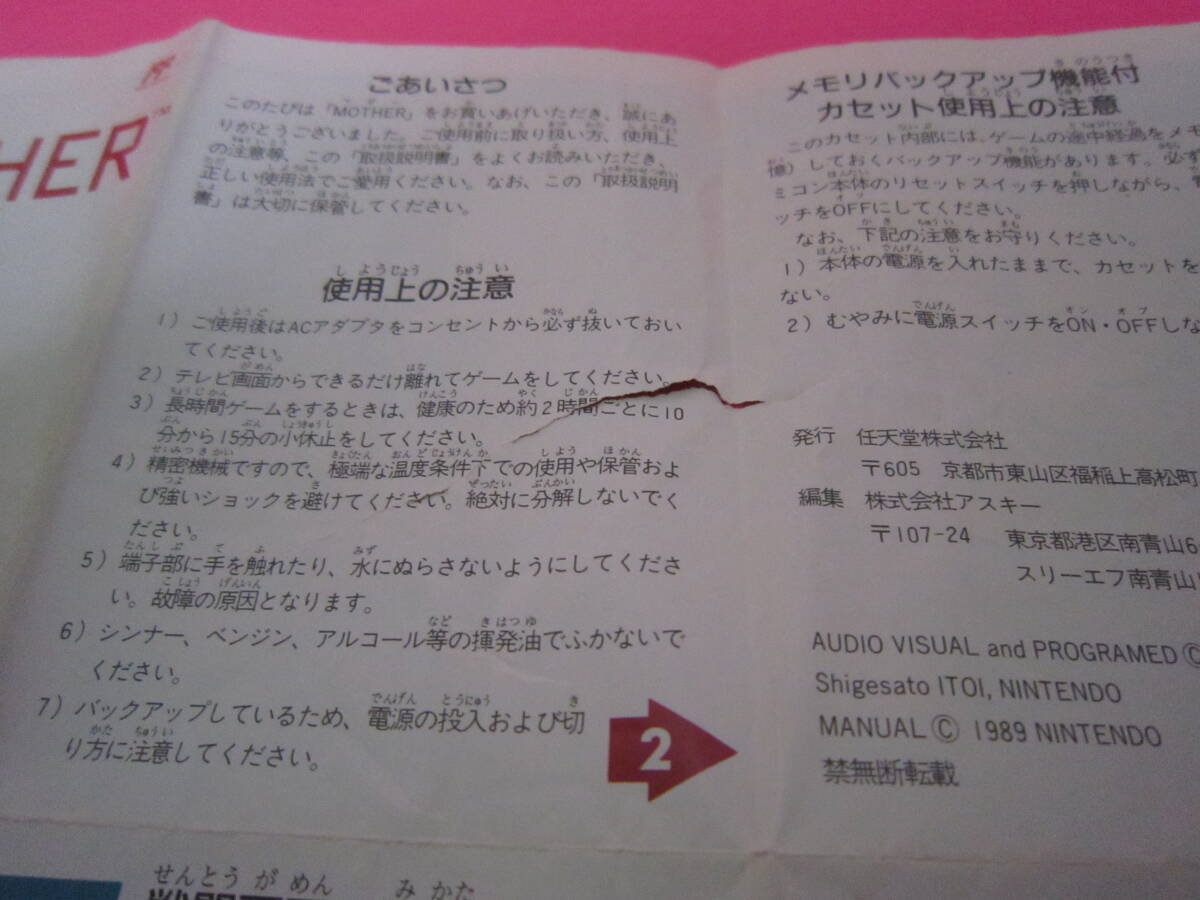 HER™
ごあいさつ
このたびは「MOTHER」をお買いあげいただき、誠にあ
りがとうございました。ご使用前に取り扱い方、使用上
の注意等、この「取扱説明書」をよくお読みいただき、
正しい使用法でご愛用ください。なお、この「取扱説明
書」は大切に保管してください。
使用上の注意
1）ご使用後はACアダプタをコンセントから必ず抜いておい
てください。
2）テレビ画面からできるだけ離れてゲームをしてください。
3）長時間ゲームをするときは、健康のため約2時間ごとに10
分から15分の小休止をしてください。
4）精密機械ですので、極端な温度条件下での使用や保管およ
び強いショックを避けてください。絶対に分解しないでく
ださい。
5）端子部に手を触れたり、水にぬらさないようにしてくださ
い。故障の原因となります。
6）シンナー、ベンジン、アルコール等の揮発油でふかないで
ください。
7）バックアップしているため、電源の投入および切
り方に注意してください。
2
メモリバックアップ機能付
カセット使用上の注意
このカセット内部には、ゲームの途中経過をメモ
憶）しておくバックアップ機能があります。必ず
ミコン本体のリセットスイッチを押しながら、電
ッチをOFFにしてください。
なお、下記の注意をお守りください。
1）本体の電源を入れたままで、カセットを
ない。
2）むやみに電源スイッチをON・OFFしな
発行 任天堂株式会社
〒605 京都市東山区福稲上高松町
編集 株式会社アスキー
〒107-24 東京都港区南青山6
スリーエフ南青山
AUDIO VISUAL and PROGRAMED ©
Shigesato ITOI, NINTENDO
MANUAL © 1989 NINTENDO
禁無断転載
せんとうがめん みかた